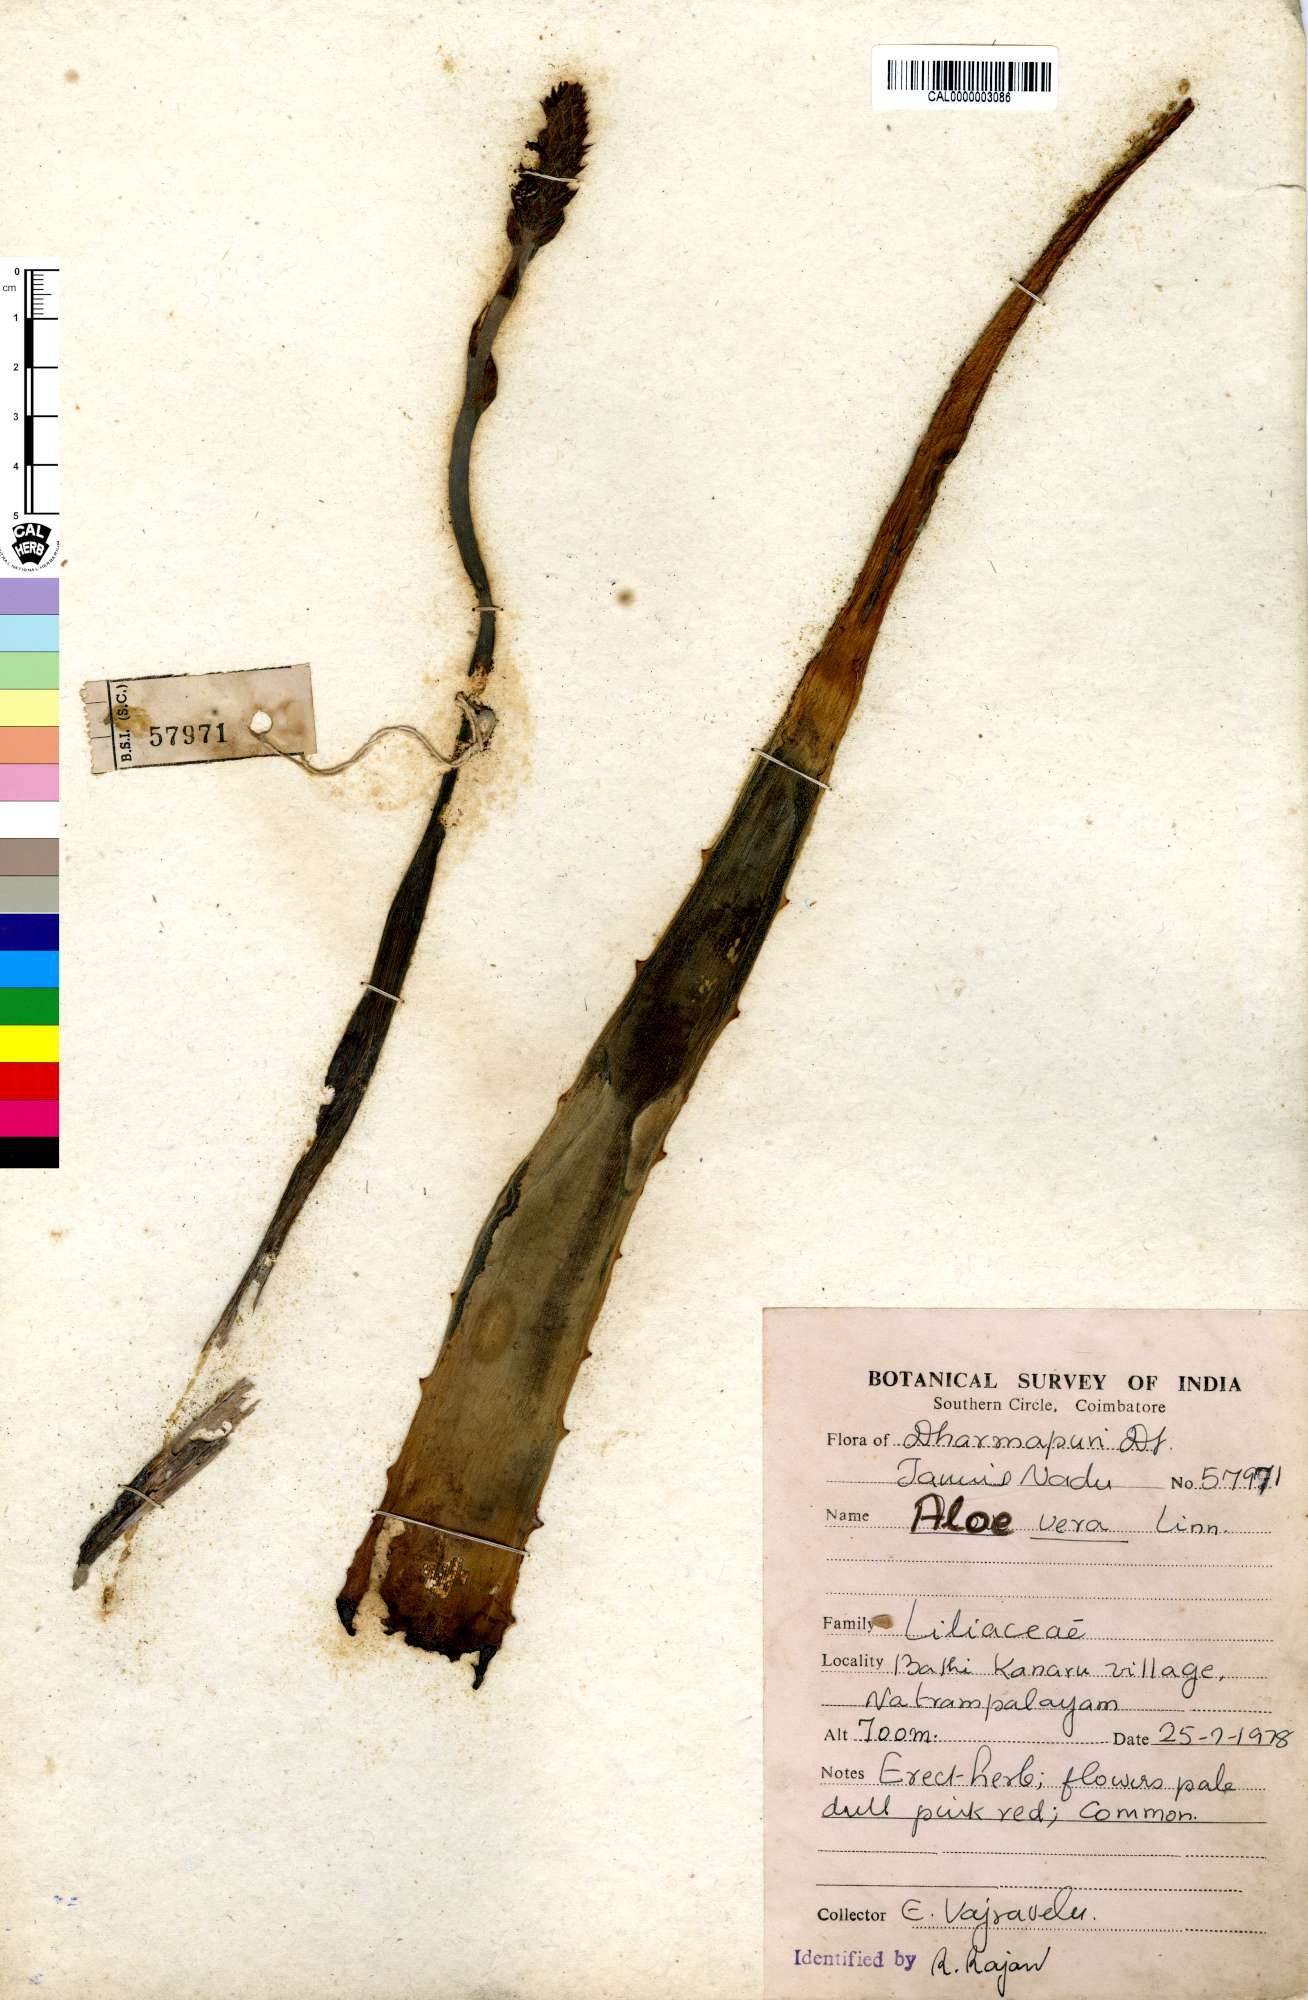 CAL0000003086
0
cm
1
2
3
4
5
CAL
HERB
B.S.I. (S.C.)
57971
BOTANICAL SURVEY OF INDIA
Southern Circle, Coimbatore
Flora of Dharmapuri Dt.
Tamil Nadu No. 57971
Name Aloe vera Linn.
Family Liliaceae
Locality Kanaru village,
Natrampalayam
Alt 700m. Date 25-7-1978
Notes Erect herb; flowers pale
dull pink red; Common.
Collector E. Vajravelu.
Identified by R. Rajan